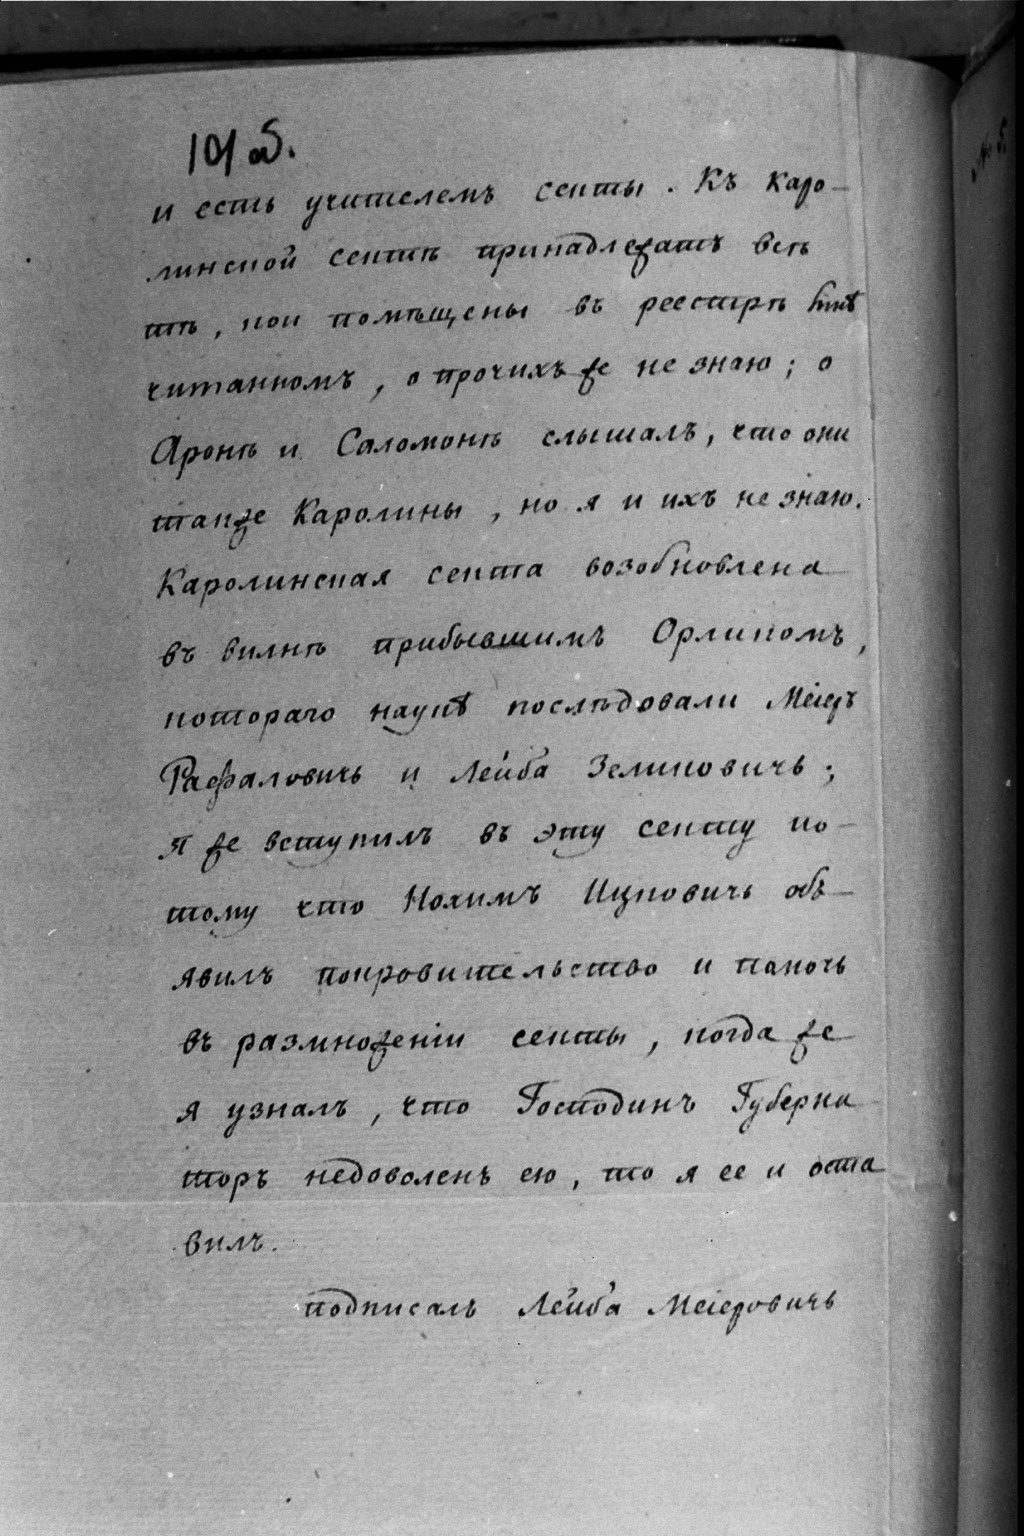 101 об.
и есть учителемъ секты. Къ Каро-
линской сектѣ принадлежатъ всѣ
тѣ, кои помѣщены въ реестрѣ мнѣ
читанномъ, о прочихъ же не знаю; о
Аронѣ и Саломонѣ слышалъ, что они
также Каролины, но я и ихъ не знаю.
Каролинская секта возобновлена
въ вилнѣ прибывшимъ Орликомъ,
котораго наукѣ послѣдовали Меіеръ
Рафаловичъ и Лейба Зеликовичъ;
я же вступилъ въ эту секту по-
тому что Нохимъ Ицковичь объ-
явилъ покровительство и памочь
въ размноженіи секты, когда же
я узналъ, что Господинъ Губерна
торъ недоволенъ ею, то я ее и оста
вилъ.
подписалъ Лейба Меіеровичь